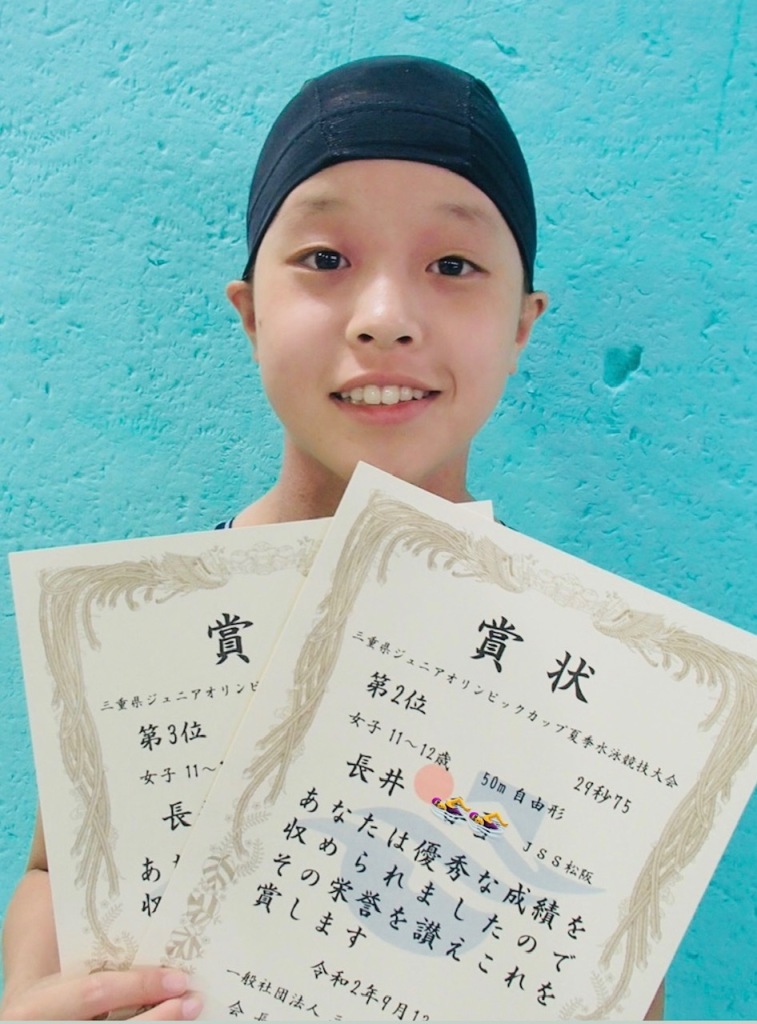 賞
三重県ジュニアオリンピ
第3位
女子 11〜
長
あ
収
賞状
三重県ジュニアオリンピックカップ夏季水泳競技大会
第2位
女子 11〜12歳
50m 自由形
29秒75
長井
JSS松阪
あなたは優秀な成績を
収められましたので
その栄誉を讃えこれを
賞します
令和2年9月1
一般社団法人
会長